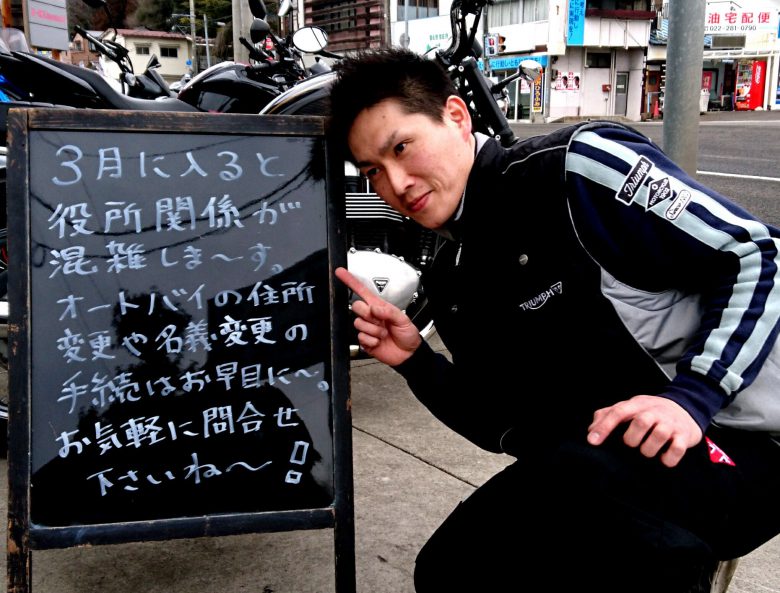 3月に入ると
役所関係が
混雑しま〜す。
オートバイの住所
変更や名義変更の
手続はお早目に〜。
お気軽に問合せ
下さいね〜!!
Triumph
TRIUMPH
油宅配便
022-281-0790